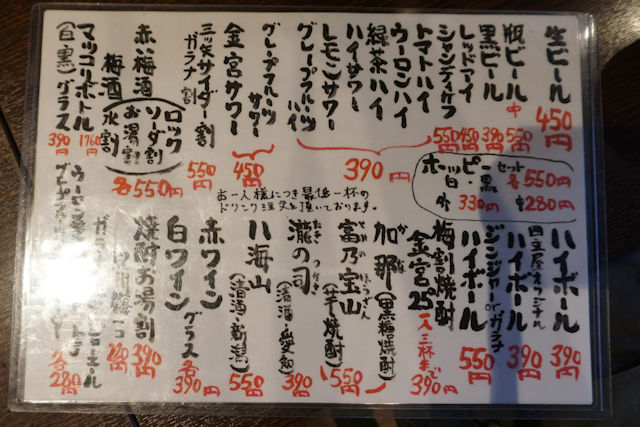 生ビール 450円
瓶ビール 中 550円
黒ビール 390円
レッドアイ 450円
シャンディガフ 550円
トマトハイ
ウーロンハイ
緑茶ハイ
ハイサワー
レモンサワー
グレープフルーツハイ
390円
グレープフルーツサワー
金宮サワー
450円
三ッ矢サイダー割
ガラナ割
550円
赤い梅酒
梅酒
ロック
ソーダ割
お湯割
水割
各550円
マッコリボトル 1760円
(白・黒) グラス 390円
ホッピー 白・黒
セット 各550円
外 330円 中280円
お一人様につき最低一杯の
ドリンク注文を頂いております。
ハイボール 390円
ハイボール 390円
ジンジャー or ガラナ
ハイボール 550円
梅割焼酎
金宮25
一人三杯まで
390円
加那 (黒糖焼酎)
かな
富乃宝山 (芋焼酎)
550円
瀧の司 (清酒・愛知)
たき つかさ
390円
八海山 (清酒・新潟)
550円
赤ワイン
白ワイン
グラス 各390円
焼酎お湯割 390円
各280円